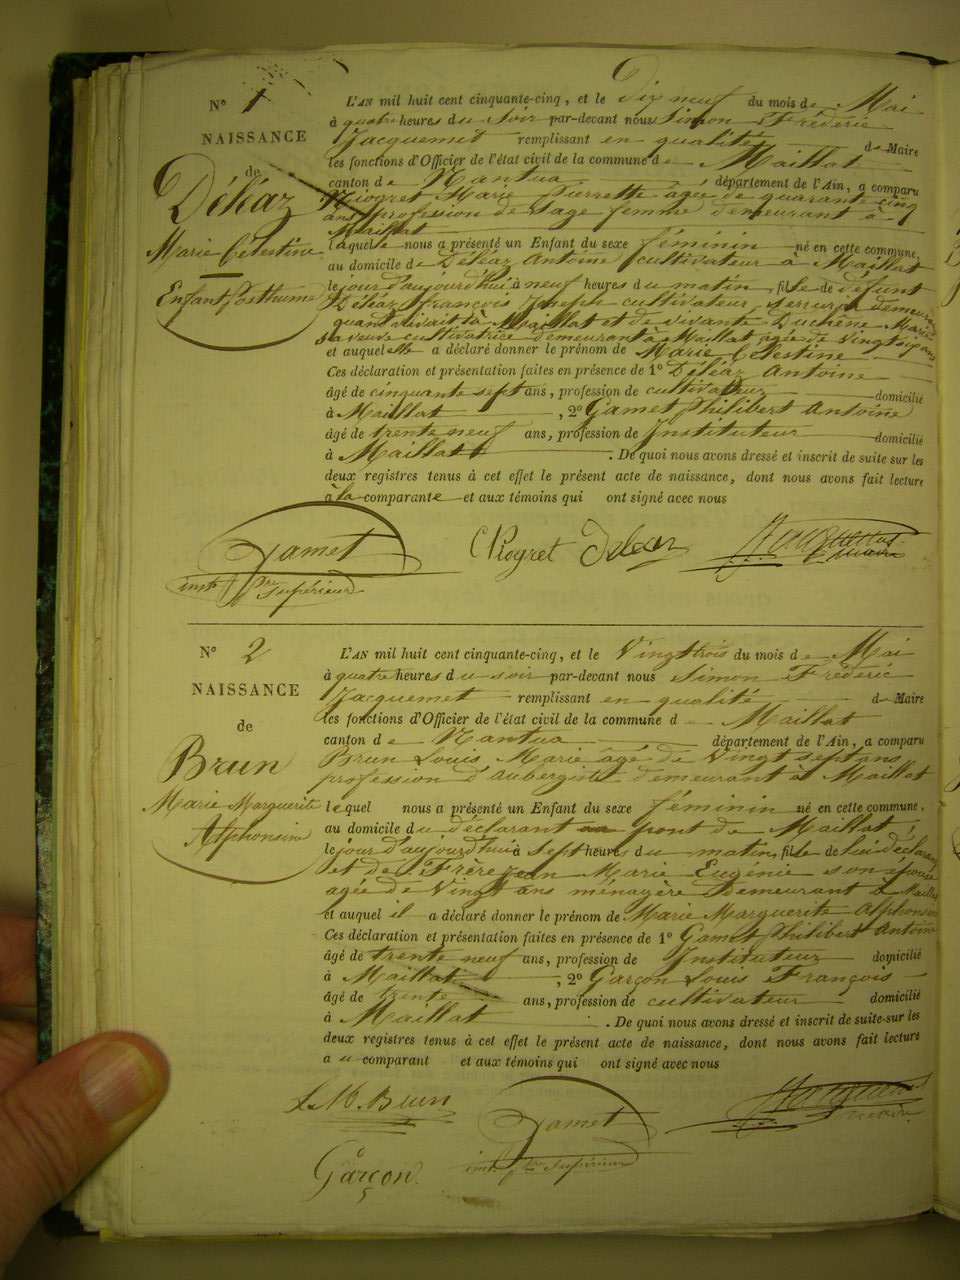 N° 1
NAISSANCE
de
Déléaz
Marie Célestine
Enfant Posthume
L'AN mil huit cent cinquante-cinq, et le Dix neuf du mois de Mai
à quatre heures du soir par-devant nous Simon Fréderic
Jacquemet remplissant en qualité de Maire
les fonctions d'Officier de l'état civil de la commune de Maillat
canton de Nantua département de l'Ain, a comparu
Niogret Marie Pierrette âgée de quarante cinq
ans profession de Sage femme demeurant à
Maillat
laquelle nous a présenté un Enfant du sexe féminin né en cette commune,
au domicile de Déléaz Antoine cultivateur à Maillat
le jour d'aujourd'hui à neuf heures du matin, fille de défunt
Déléaz François Joseph cultivateur, serrurier demeurant
quand vivait à Maillat et de vivante Duchêne Marie
sa veuve cultivatrice demeurant à Maillat agée de vingt six ans
et auquel elle a déclaré donner le prénom de Marie Célestine
Ces déclaration et présentation faites en présence de 1° Déléaz Antoine
âgé de cinquante sept ans, profession de cultivateur domicilié
à Maillat, 2° Gamet Philibert Antoine
âgé de trente neuf ans, profession de Instituteur domicilié
à Maillat. De quoi nous avons dressé et inscrit de suite sur les
deux registres tenus à cet effet le présent acte de naissance, dont nous avons fait lecture
à la comparante et aux témoins qui ont signé avec nous
Gamet Niogret Deleaz Jacquemet
inst.r p.re supérieur maire
N° 2
NAISSANCE
de
Brun
Marie Marguerite
Alphonsine
L'AN mil huit cent cinquante-cinq, et le Vingt trois du mois de Mai
à quatre heures du soir par-devant nous Simon Fréderic
Jacquemet remplissant en qualité de Maire
les fonctions d'Officier de l'état civil de la commune de Maillat
canton de Nantua département de l'Ain, a comparu
Brun Louis Marie âgé de Vingt sept ans
profession d'aubergiste demeurant à Maillat
lequel nous a présenté un Enfant du sexe féminin né en cette commune,
au domicile du déclarant au pont de Maillat,
le jour d'aujourd'hui à sept heures du matin, fille de lui déclarant
et de Frèrejean Marie Eugénie son épouse
agée de Vingt ans ménagère Demeurant à Maillat
et auquel il a déclaré donner le prénom de Marie Marguerite Alphonsine
Ces déclaration et présentation faites en présence de 1° Gamet Philibert Antoine
âgé de trente neuf ans, profession de Instituteur domicilié
à Maillat, 2° Garçon Louis François
âgé de trente ans, profession de cultivateur domicilié
à Maillat. De quoi nous avons dressé et inscrit de suite sur les
deux registres tenus à cet effet le présent acte de naissance, dont nous avons fait lecture
au comparant et aux témoins qui ont signé avec nous
L. M. Brun Gamet Jacquemet
inst.r p.re supérieur maire
Garçon